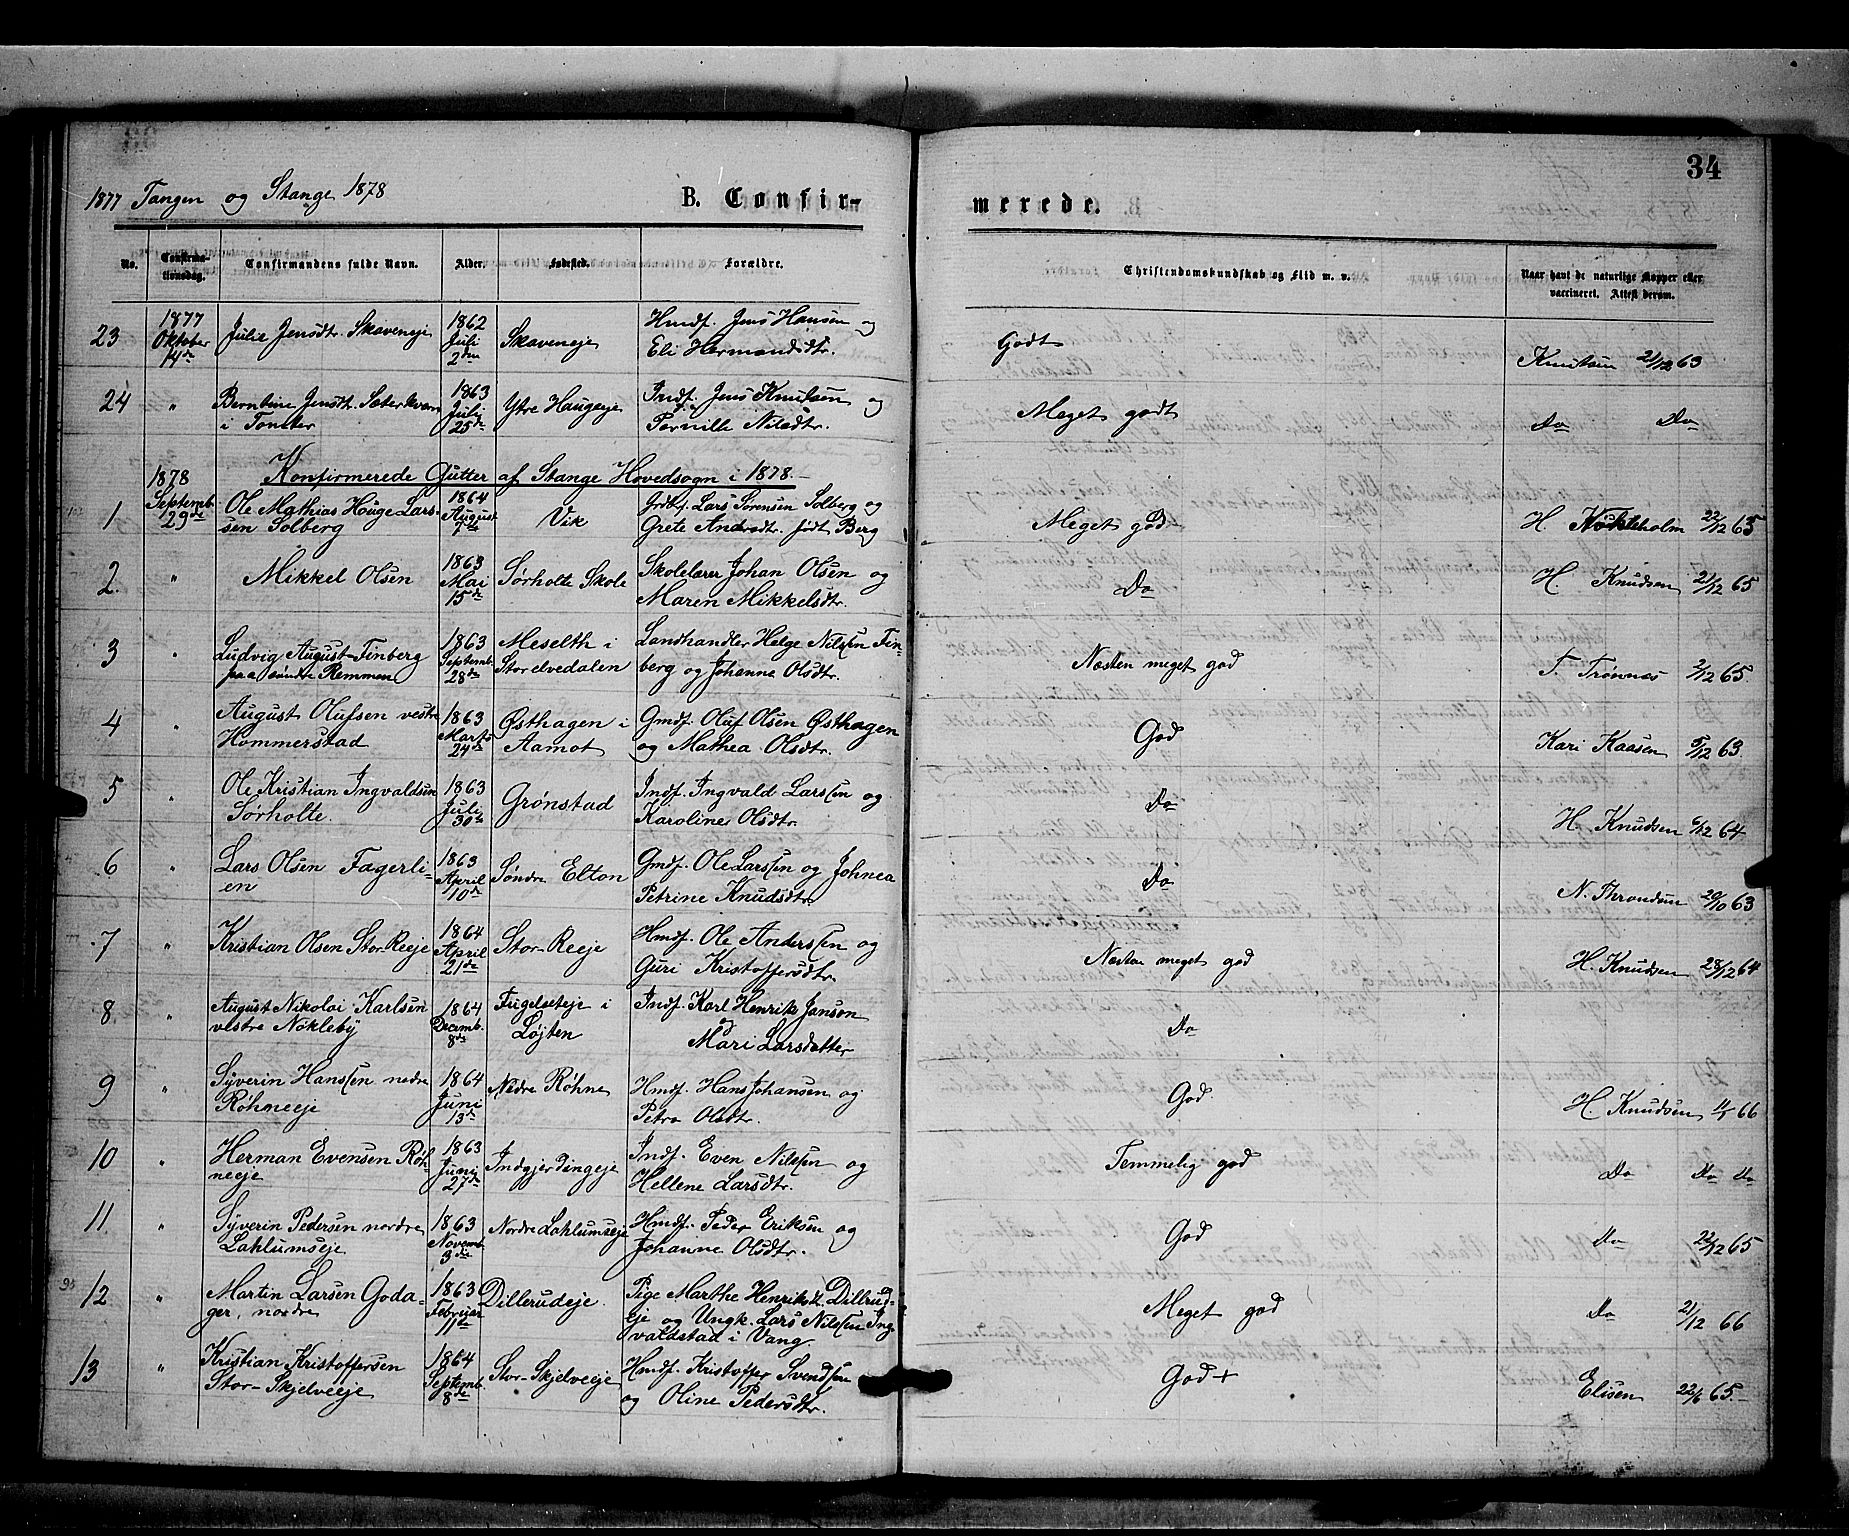 34
1877 Tangen og Stange 1878
B. Confir-
merede.
No.
Confirma-
tionsdag.
Confirmandens fulde Navn.
Alder.
Fødested.
Forældre.
Christendomskundskab og Flid m. v.
Naar havt de naturlige Kopper eller
vaccineret. Attest derom.
23
1877
Oktober
14de
Julie Jensdtr. Skaveneje
1862
Juli
2den
Skaveneje
Hmdf. Jens Hansen og
Eli Hermandsdtr.
Godt
Knutsen 21/12 63
24
"
Berntine Jensdtr.
i Tomter
1863
Juli
25de
Ytre Haugeeje
Indf. Jens Knutsen og
Pernille Nilsdtr.
Meget godt
Do Do
Konfirmerede Gutter af Stange Hovedsogn i 1878.
1
1878
Septemb.
29de
Ole Mathias Houge Lars-
sen Solberg
1864
August
7de
Vik
Grdf. Lars Sørensen Solberg og
Grete Andrsdtr. født Berg
Meget god
H. Nøkleholm 22/12 65
2.
"
Mikkel Olsen
1863
Mai
15de
Sørholte Skole
Skolelærer Johan Olsen og
Maren Mikkelsdtr.
Do
H. Knudsen 21/12 65
3
"
Ludvig August Finberg
paa søndre Remmen
1863
Septemb.
28de
Meselth i
Storelvedalen
Landhandler Helge Nilssen Fin-
berg og Johanne Olsdtr.
Næsten meget god
T. Trønnæs 2/12 65.
4
"
August Olufsen vestre
Hommerstad
1863
Marts
24de
Østhagen i
Aamot
Gmdf. Oluf Olsen Østhagen
og Mathea Olsdtr.
God
Kari Kaasen 5/12 63
5
"
Ole Kristian Ingvaldsen
Sørholte.
1863
Juli
30te
Grønstad
Indf. Ingvald Larssen og
Karoline Olsdtr.
Do
H. Knudsen 6/12 64
6
"
Lars Olsen Fagerli-
en
1863
April
10de
Søndre Elton
Gmdf. Ole Larssen og Johnea
Petrine Knudsdtr.
Do
N. Throndsen 20/10 63
7
"
Kristian Olsen Stor-Reeje
1864
April
21de
Stor-Reeje
Hmdf. Ole Anderssen og
Guri Kristoffersdtr.
Næsten meget god
H. Knudsen 28/12 64
8.
"
August Nikolai Karlsen
vestre Nøkleby
1864
Decemb.
8de
Fugelseteje i
Løjten
Indf. Karl Henrik Janson
og
Mari Larsdatter
Do
9
"
Syverin Hanssen nedre
Røhneeje
1864
Juni
13de
Nedre Røhne
Hmdf. Hans Johansen og
Petra Olsdtr.
God
H. Knudsen 11/1 66
10
"
Herman Evensen Røh-
neeje
1863
Juni
27de
Indgjerdingeje
Indf. Even Nilssen og
Hellene Larsdtr.
Temmelig god
Do Do Do
11.
"
Syverin Pedersen nordre
Lahlumseje
1863
Novemb.
3die
Nordre Lahlumseje
Hmdf. Peder Eriksen og
Johanne Olsdtr.
God
Do 22/12 65
12
"
Martin Larsen Goda-
ger, nordre
1863
Februar
11te
Dillerudeje.
Pige Marthe Henriksdt. Dillrud-
eje og Ungk. Lars Nilssen Ing-
valdstad i Vang.
Meget god
Do 21/12 66
13
"
Kristian Kristoffersen
Stor-Skjelveeje
1864
Septemb.
8de
Stor-Skjelveeje
Hmdf. Kristoffer Svendsen
og Oline Pedersdtr.
God+
Elisen 22/6 65.